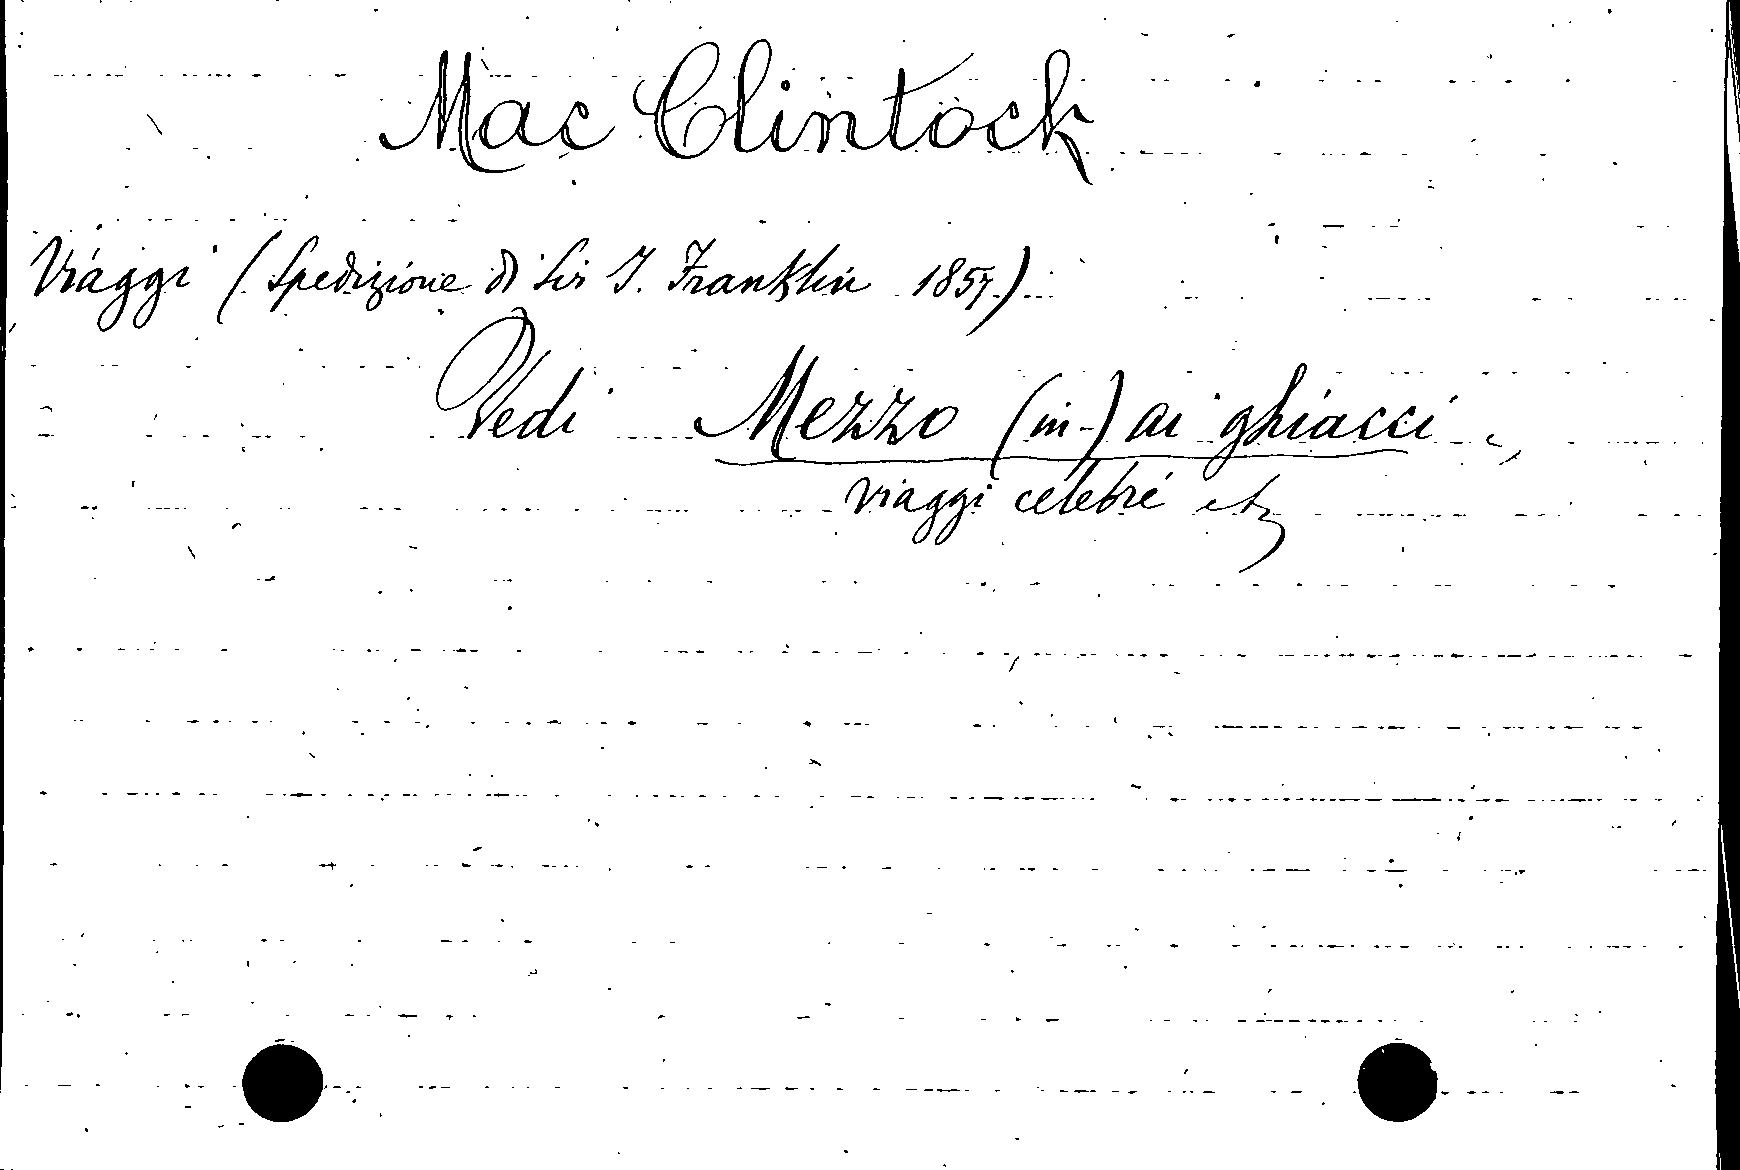 Mac Clintock
Viaggi (Spedizione di Sir J. Franklin 1857)
Vedi Mezzo (in-) ai ghiacci
viaggi celebri etc